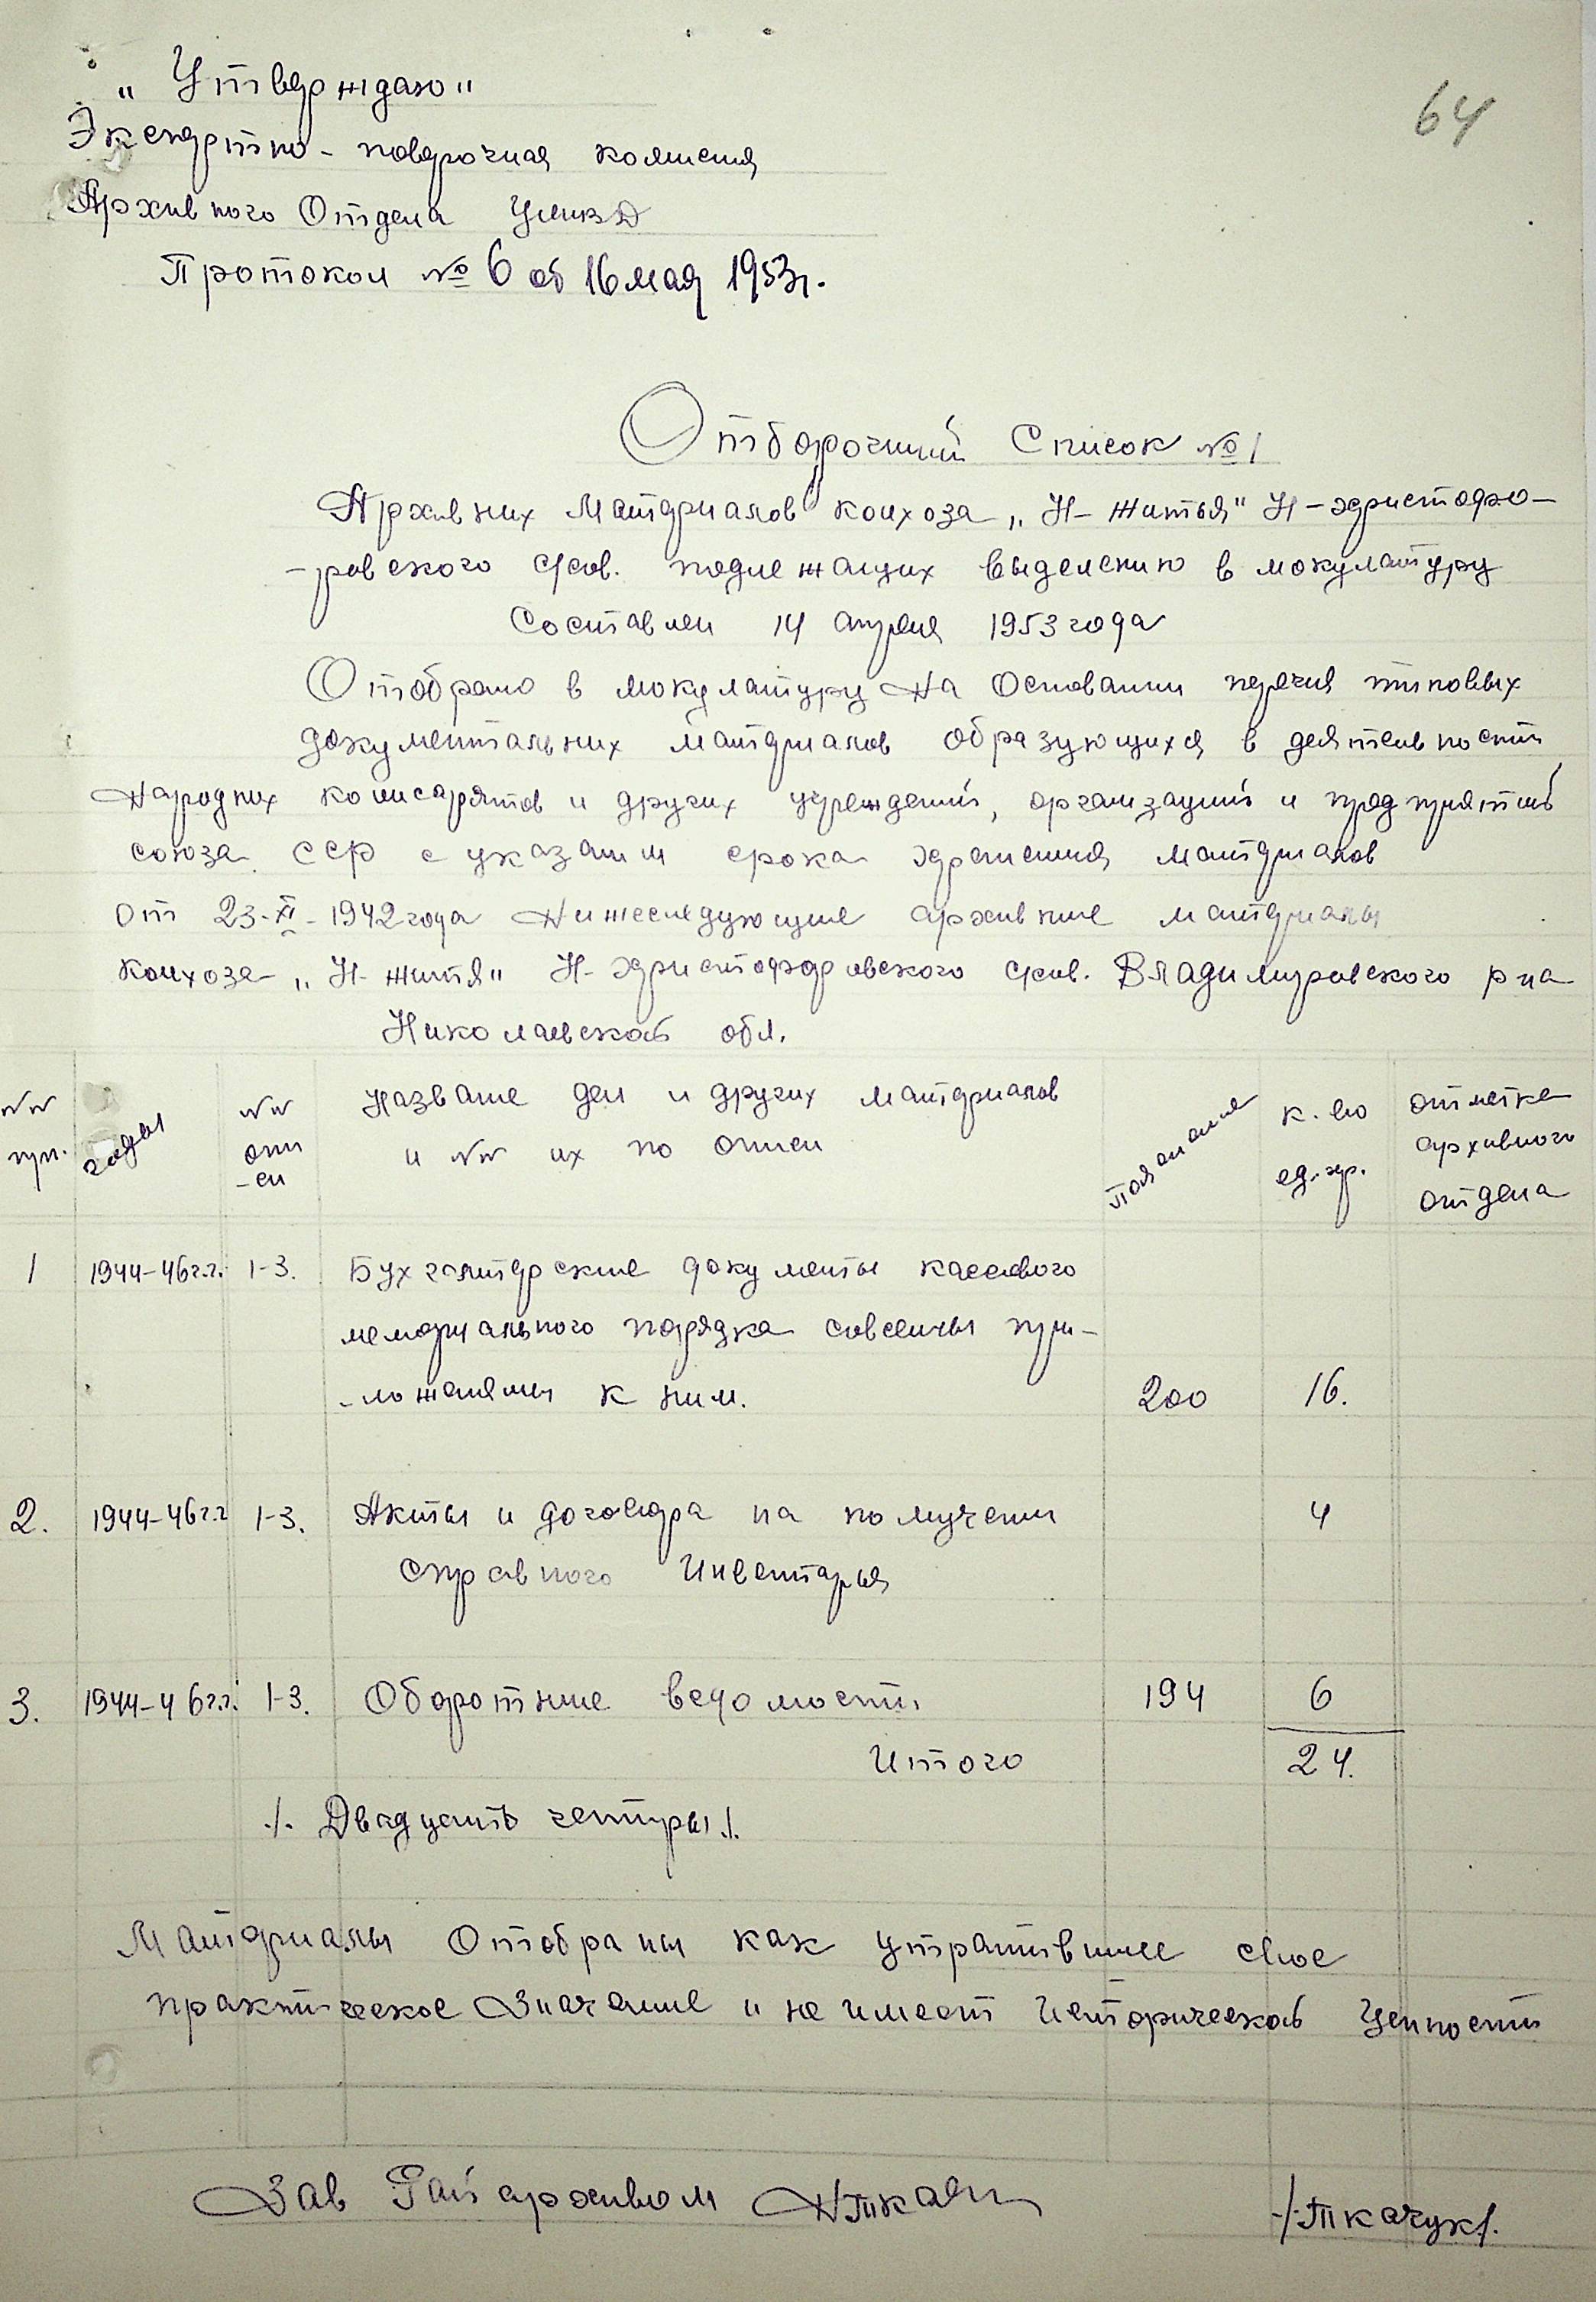 „Утверждаю"
64
Экспертно-поверочная комисия
Архивного Отдела УМВД
Протокол № 6 об 16 мая 1953г.
Отборочний Список № 1
Архивних Материалов колхоза „Н-Життья" Н-христофо-
-ровского с/сов. подлежащих выделению в мокулатуру
Составлен 14 апреля 1953 года
Отобрано в мокулатуру На Основании перечня типовых
документальних материалов образующихся в деятельности
Народних комисарятов и других учреждений, организаций и предприятий
союза ССР с указанием срока хранения материалов
от 23-XI-1942 года Нижеследующие архивние материалы
колхоза „Н-життя" Н-христофоровского с/сов. Владимировского р-на
Николаевской обл.
№№ пп. годы №№ опи-си Название дел и других материалов и №№ их по описи к.во ед.хр. отметка архивного отдела
1 1944-46г.г. 1-3. Бухгалтерские документы кассового
мемориального порядка совсемы при-
-ложениями к ним. 200 16.
2. 1944-46г.г 1-3. Акты и договора на получении 4
справного Инвентарья
3. 1944-46г.г. 1-3. Оборотние ведомости 194 6
Итого 24.
./. Двадцать четыры ./.
Материалы Отобраны как утратившее свое
практическое Значение и не имеет Исторической Ценности
Зав Райархивом /Ткачук/.